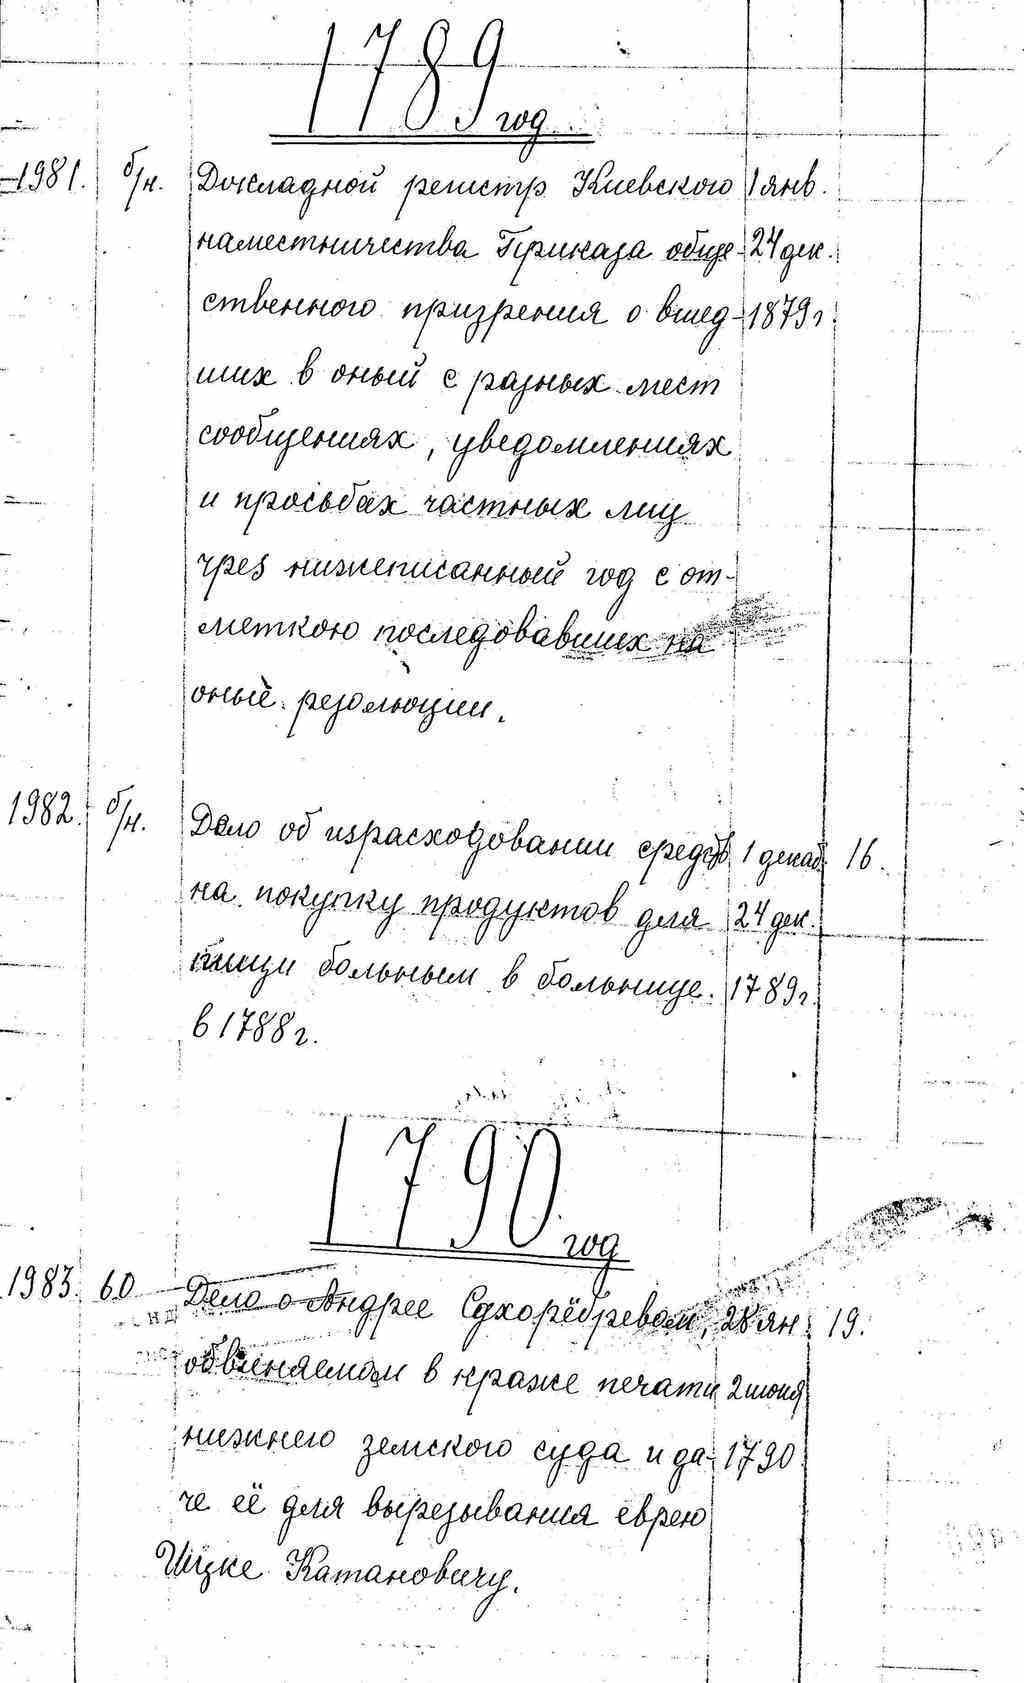 1789 год
1981. б/н. Докладной регистр Киевского 1 янв.
наместничества Приказа обще- 24 дек.
ственного призрения о вшед- 1879 г.
ших в оный с разных мест
сообщениях, уведомлениях
и просьбах частных лиц
чрез нижеписанный год с от-
меткою последовавших на
оный резолюции.
1982. б/н. Дело об израсходовании средств 1 декаб. 16.
на покупку продуктов для 24 дек.
пищи больным в больнице. 1789 г.
в 1788 г.
1790 год
1983. 60 Дело о Андрее Сухорёбревом, 28 ян. 19.
обвиняемом в краже печати 2 июня
нижнего земского суда и да- 1790
че её для вырезывания еврею
Ицке Катановичу.